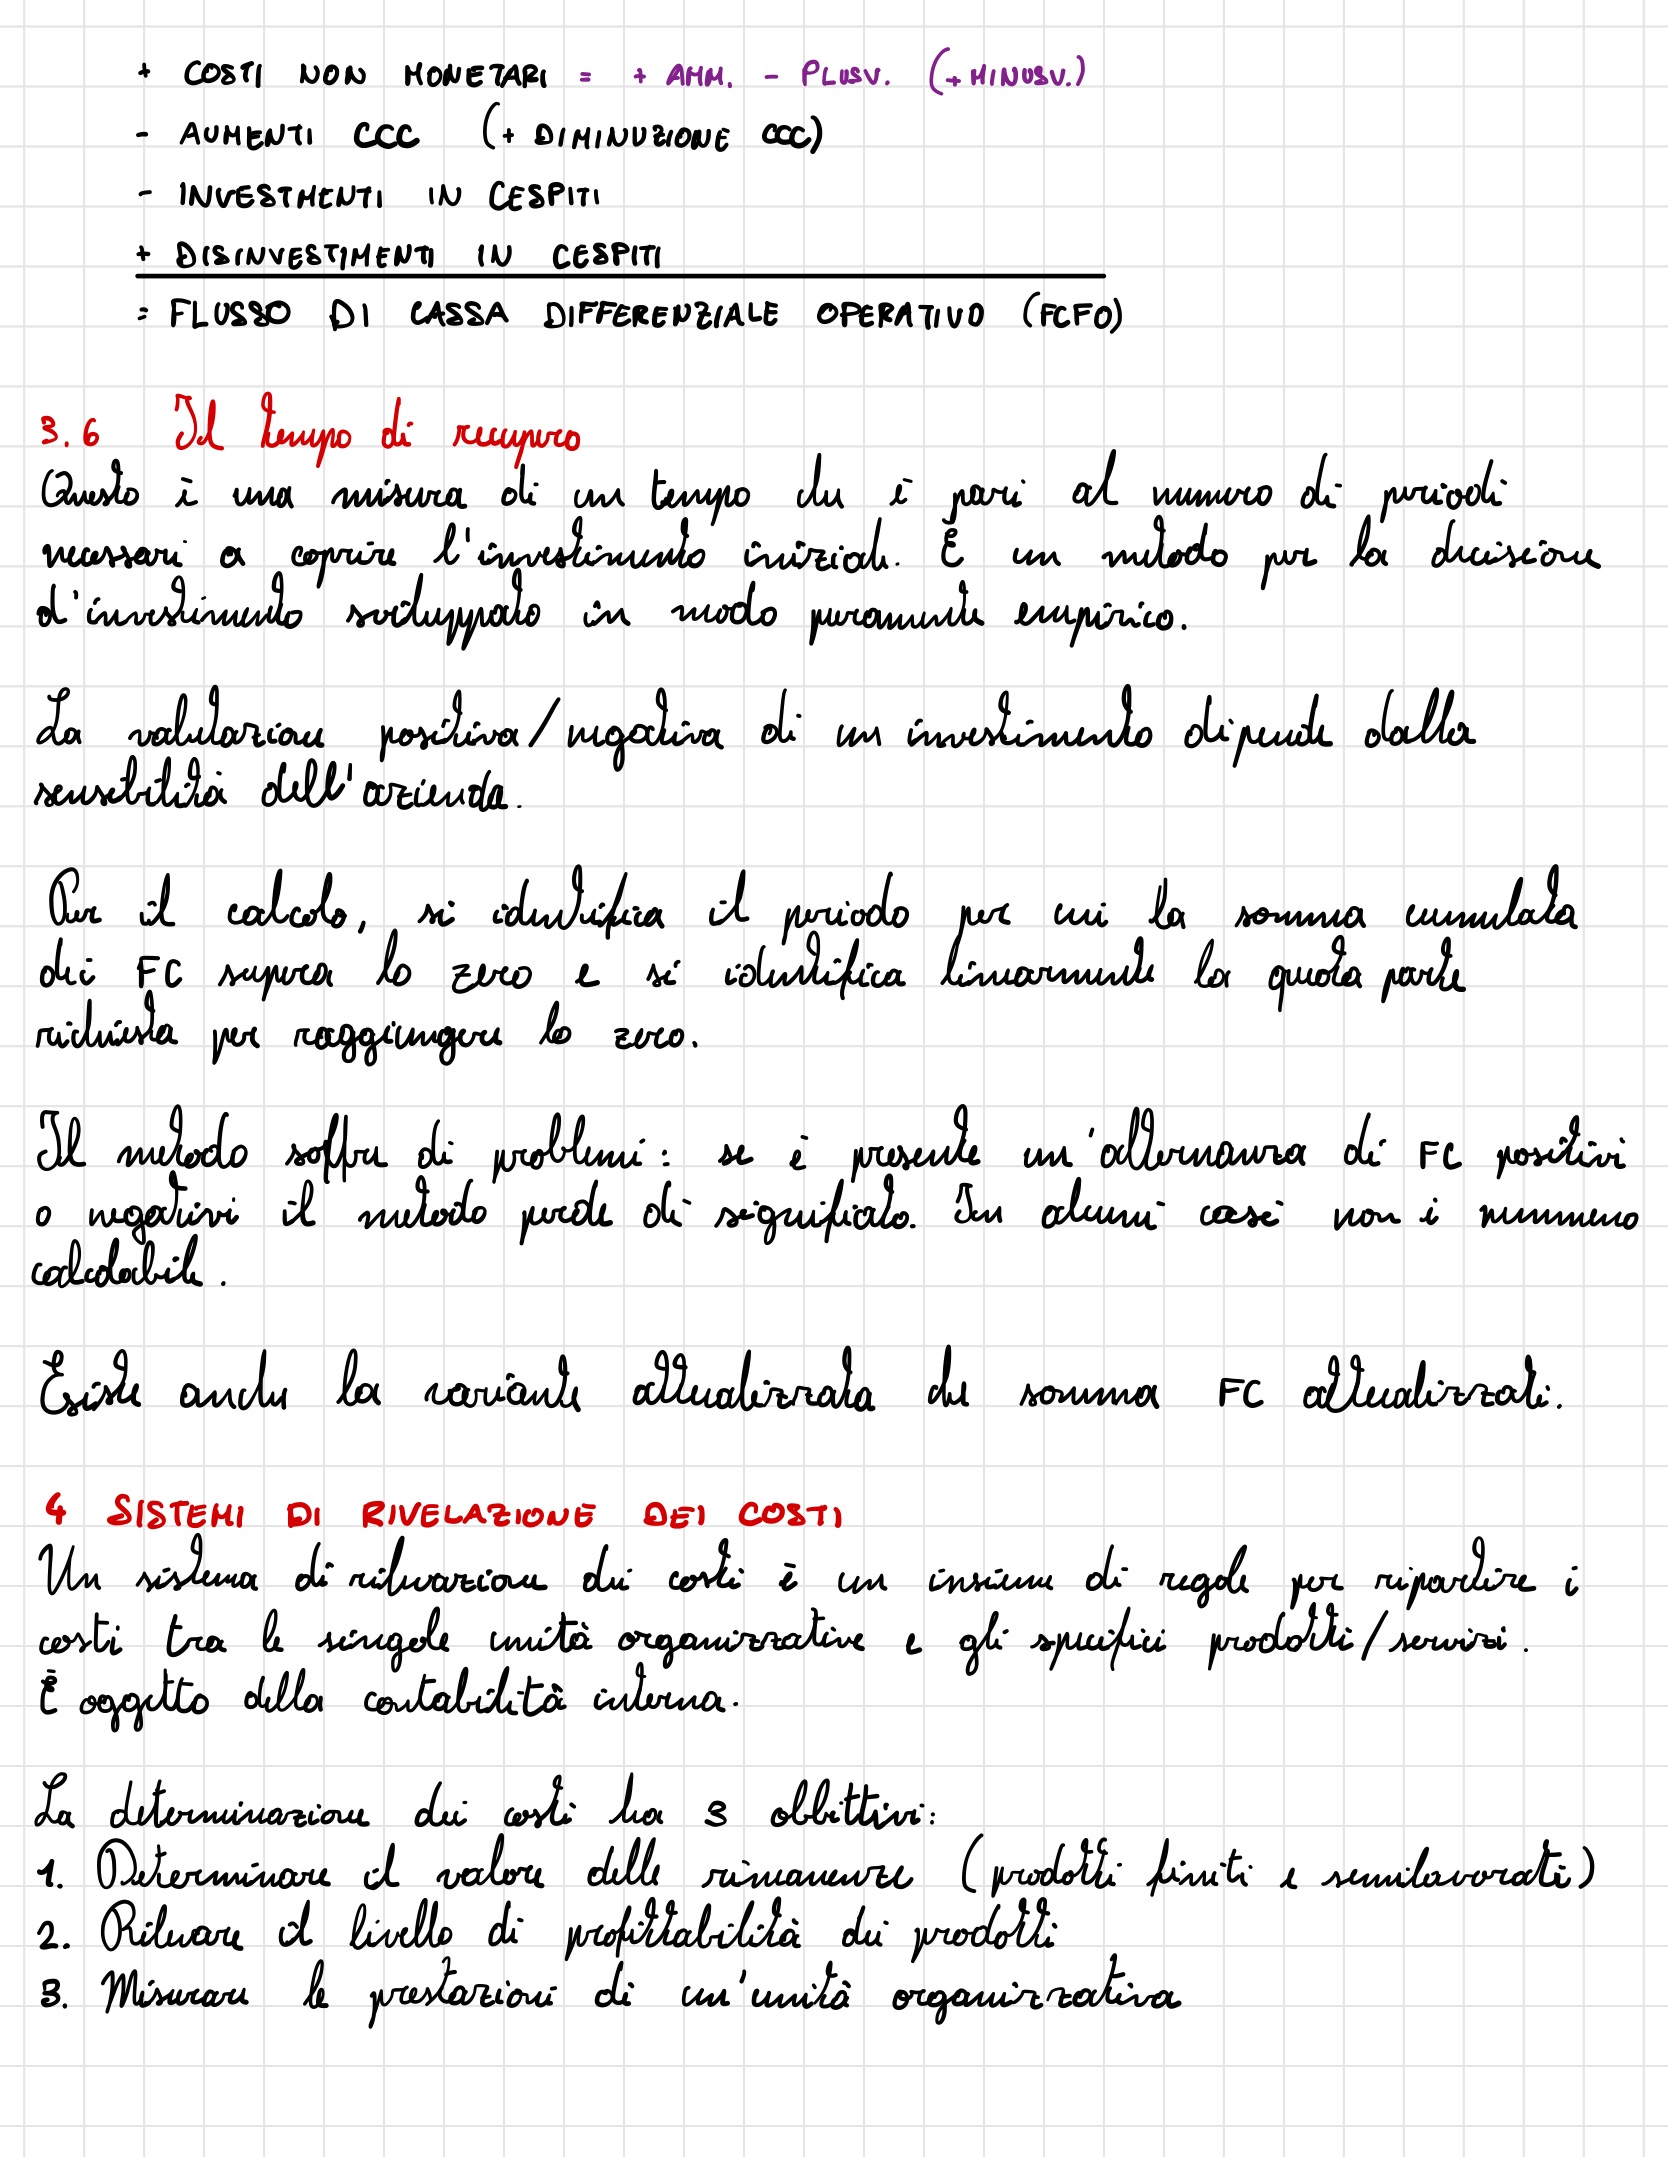 + COSTI NON MONETARI = + AMM. - PLUSV. (+ MINUSV.)
- AUMENTI CCC (+ DIMINUZIONE CCC)
- INVESTMENTI IN CESPITI
+ DISINVESTIMENTI IN CESPITI
= FLUSSO DI CASSA DIFFERENZIALE OPERATIVO (FCFO)
3.6 Il tempo di recupero
Questo è una misura di un tempo che è pari al numero di periodi
necessari a coprire l'investimento iniziale. È un metodo per la decisione
d'investimento sviluppato in modo puramente empirico.
La valutazione positiva/negativa di un investimento dipende dalla
sensibilità dell'azienda.
Per il calcolo, si identifica il periodo per cui la somma cumulata
dei FC supera lo zero e si identifica linearmente la quota parte
richiesta per raggiungere lo zero.
Il metodo soffre di problemi: se è presente un'alternanza di FC positivi
o negativi il metodo perde di significato. In alcuni casi non è nemmeno
calcolabile.
Esiste anche la variante attualizzata che somma FC attualizzati.
4 SISTEMI DI RIVELAZIONE DEI COSTI
Un sistema di rilevazione dei costi è un insieme di regole per ripartire i
costi tra le singole unità organizzative e gli specifici prodotti/servizi.
È oggetto della contabilità interna.
La determinazione dei costi ha 3 obbittivi:
1. Determinare il valore delle rimanenze (prodotti finiti e semilavorati)
2. Rilevare il livello di profittabilità dei prodotti
3. Misurare le prestazioni di un'unità organizzativa